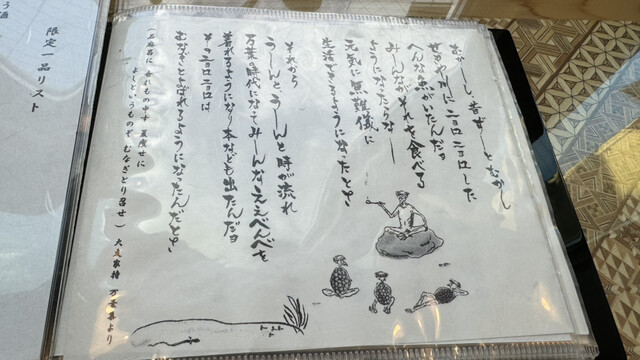 むかーし、昔ずーとむかし
川にニョロニョロした
へんな魚がいたんだヨ
みーんながそれを食べる
ようになったらなー
元気に無難儀に
生活できるようになったとさ
それから
うーんと、うーんと時が流れ
万葉の時代になってみーんなええべんべを
着れるようになり本なども出たんだヨ
そのニョロニョロは
むなぎとよばれるようになったんだとさ
(石麻呂に吾れもの申す 夏痩せに
よしと、いうものぞ むなぎとり召せ) 大友家持 万葉集より
限定一品リスト
う酒